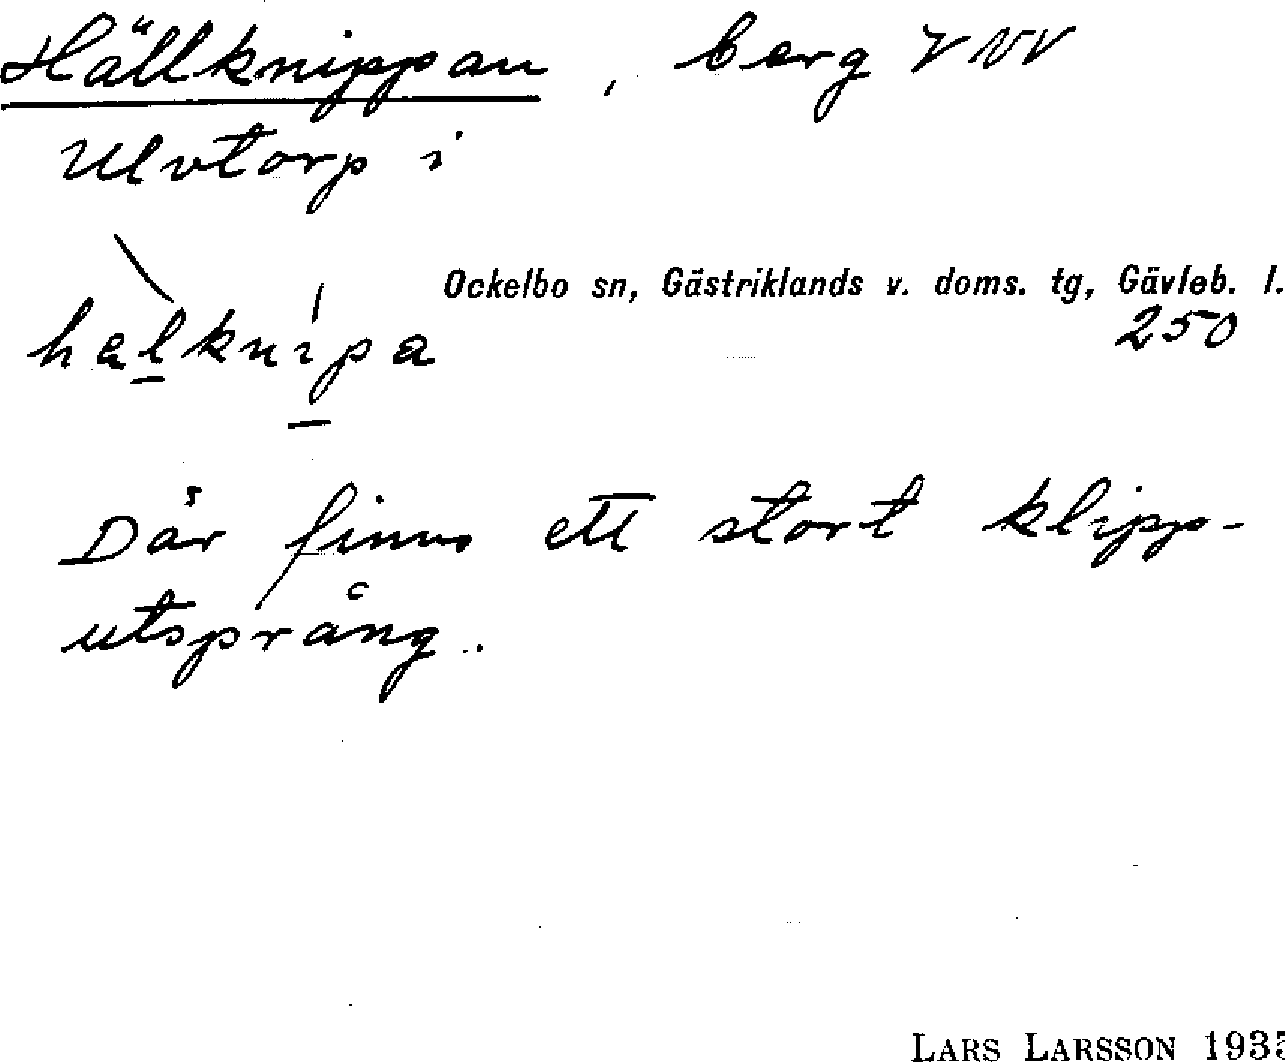 Hällknippan, berg VNV
Ulvtorp i
Ockelbo sn, Gästriklands v. doms. tg, Gävleb. l.
250
hälknipa
Där finns ett stort klipp-
utsprång.
LARS LARSSON 193